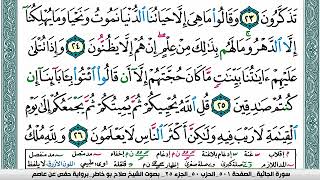 تَذَكَّرُونَ ٢٣ وَقَالُوا۟ مَا هِىَ إِلَّا حَيَاتُنَا ٱلدُّنْيَا نَمُوتُ وَنَحْيَا وَمَا يُهْلِكُنَآ
إِلَّا ٱلدَّهْرُ وَمَا لَهُم بِذَٰلِكَ مِنْ عِلْمٍ إِنْ هُمْ إِلَّا يَظُنُّونَ ٢٤ وَإِذَا تُتْلَىٰ
عَلَيْهِمْ ءَايَـٰتُنَا بَيِّنَـٰتٍ مَّا كَانَ حُجَّتَهُمْ إِلَّآ أَن قَالُوا۟ ٱئْتُوا۟ بِـَٔابَآئِنَآ إِن
كُنتُمْ صَـٰدِقِينَ ٢٥ قُلِ ٱللَّهُ يُحْيِيكُمْ ثُمَّ يُمِيتُكُمْ ثُمَّ يَجْمَعُكُمْ إِلَىٰ يَوْمِ
ٱلْقِيَـٰمَةِ لَا رَيْبَ فِيهِ وَلَـٰكِنَّ أَكْثَرَ ٱلنَّاسِ لَا يَعْلَمُونَ ٢٦ وَلِلَّهِ مُلْكُ
سورة الجاثية . الصفحة ٥٠١ الحزب ٥٠ الجزء ٢٥ . بصوت الشيخ صلاح بو خاطر . برواية حفص عن عاصم